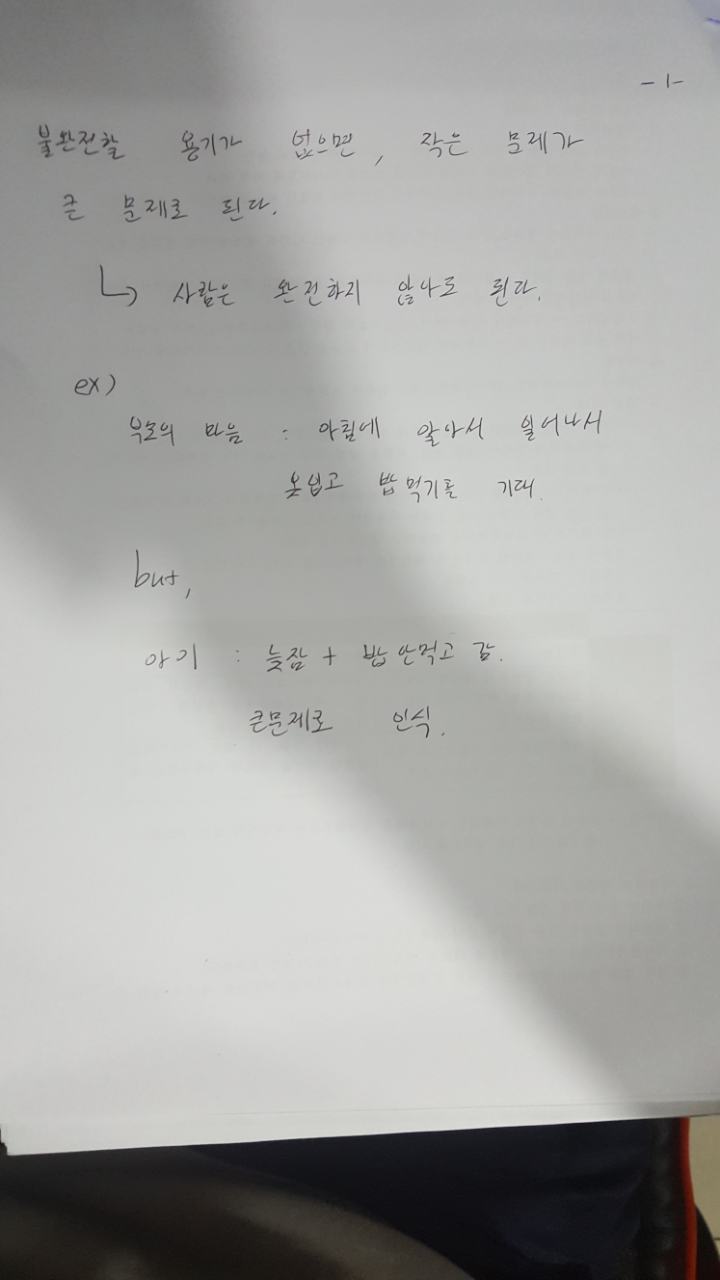 -1-
불완전할 용기가 없으면, 작은 문제가
큰 문제로 된다.
↳ 사람은 완전하지 않나도 된다.
ex)
부모의 마음 : 아침에 알아서 일어나서
옷입고 밥먹기를 기대.
but,
아기 : 늦잠 + 밥안먹고 감.
큰문제로 인식.